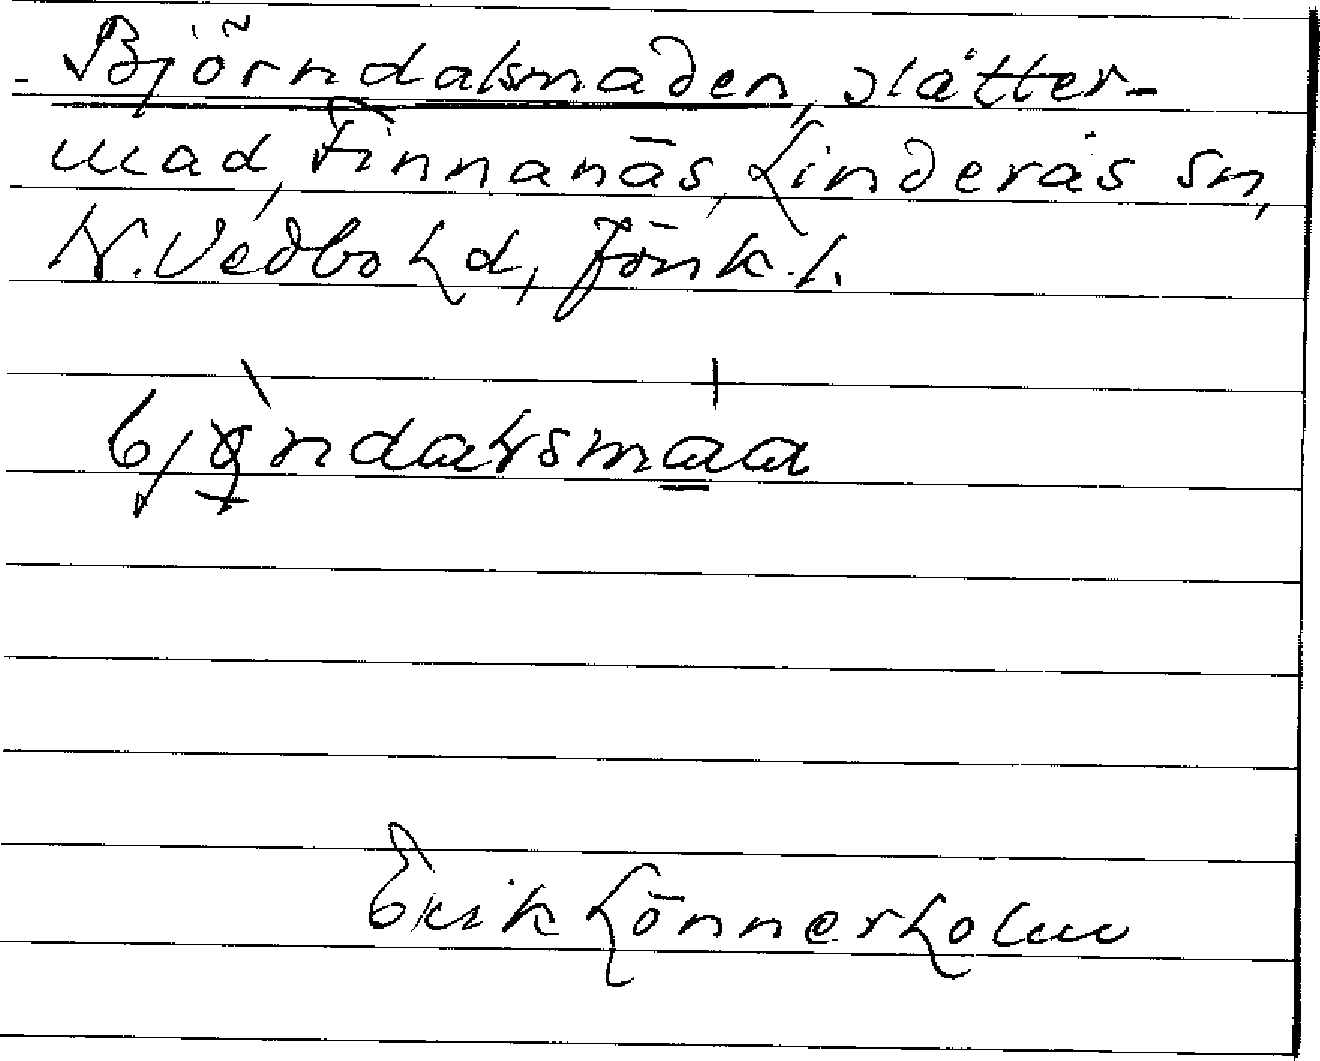 Björndalsmaden, slåtter-
mad, Finnanäs, Linderås sn,
N. Vedbo hd, Jönk. l.
Erik Lönnerholm